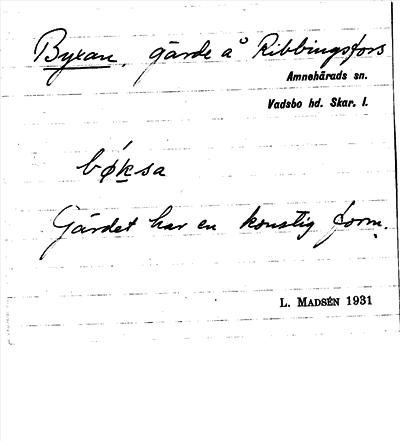 Byxan, gärde å Ribbingsfors
Amnehärads sn.
Vadsbo hd. Skar. l.
bǿksa
Gärdet har en konstig form.
L. MADSÉN 1931